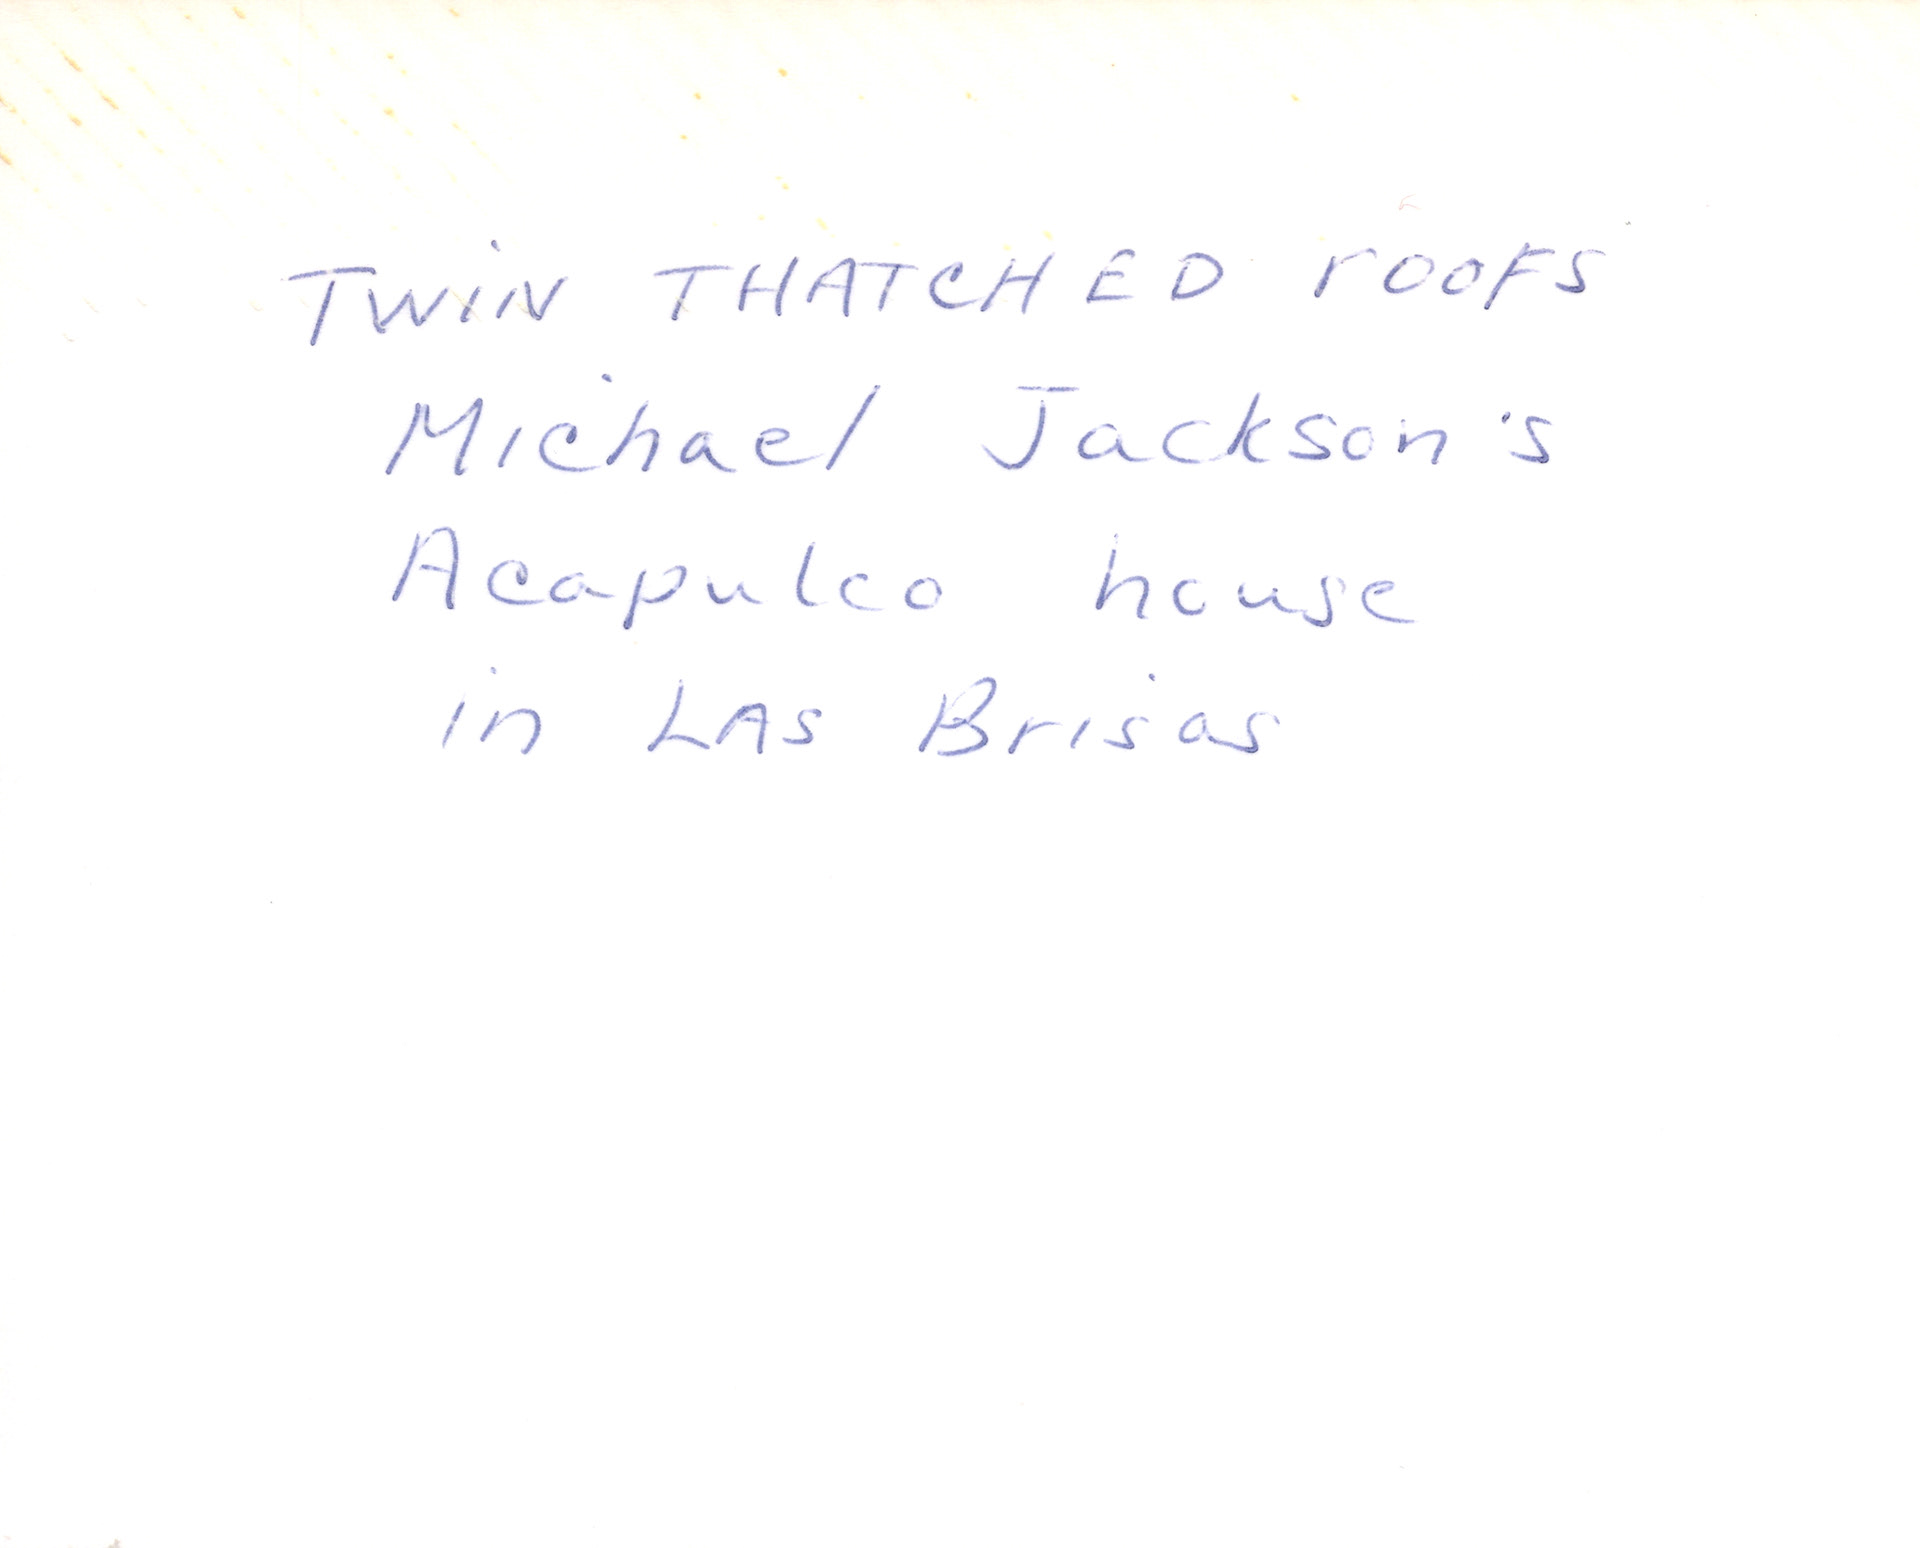 TWiN THATCHED roofs
Michael Jackson's
Acapulco house
in LAs Brisas